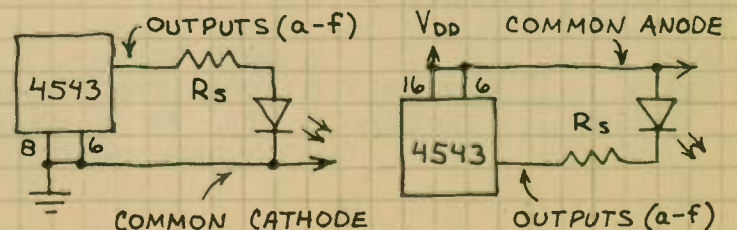 OUTPUTS (a-f)
4543
Rs
8 6
COMMON CATHODE
VDD
COMMON ANODE
16 6
4543
Rs
OUTPUTS (a-f)